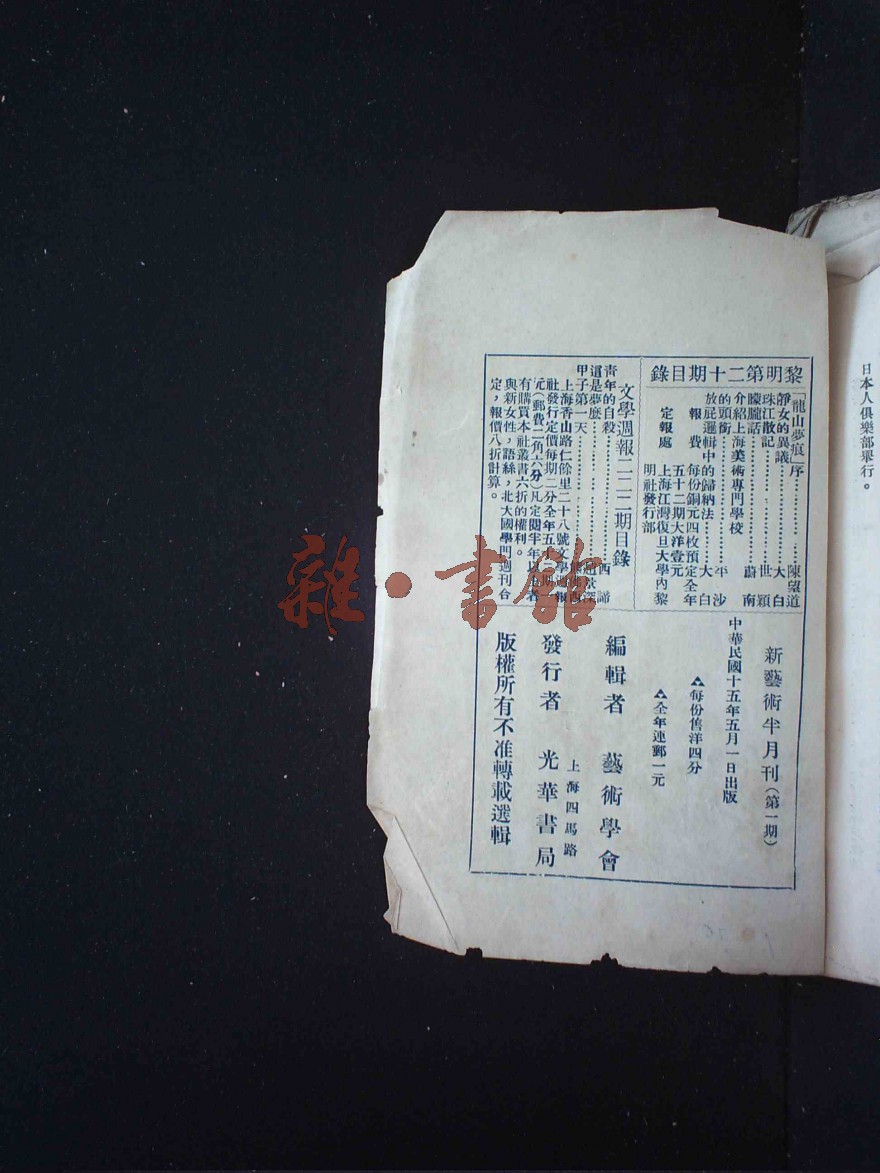 日本人俱樂部舉行。
黎明第二十期目錄
「龍山夢痕」序…………陳望道
靜女的異議…………大白
珠江散記…………世穎
朦朧話…………蔚南
介紹上海美術專門學校
的頭銜…………平沙
放屁邏輯中的歸納法…………大白
報費 每份銅元四枚預定全年
五十二期大洋壹元
定報處 上海江灣復旦大學內黎
明社發行部
文學週報二二二期目錄
青年的自殺…………西諦
這是夢麽…………趙景深
甲子第一天…………
上海香山路仁餘里二十八號文學週報
社發行定價每期二分全年五十期一
元(郵費二角六分)凡定閱半年以上者
有購買本社叢書六折的權利。
與新女性,語絲,北大國學門週刊合
定,報價八折計算。
新藝術半月刊(第一期)
中華民國十五年五月一日出版
每份售洋四分
全年連郵一元
編輯者 藝術學會
上海四馬路
發行者 光華書局
版權所有不准轉載選輯
雜·書館